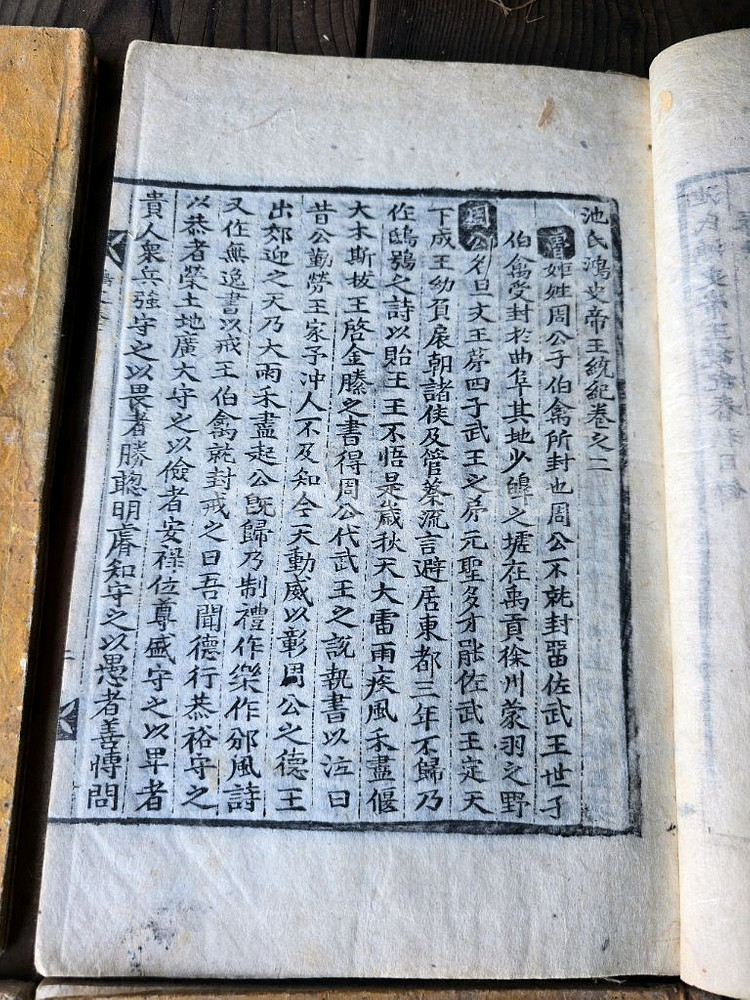 池氏鴻史帝王統紀卷之二
魯姬姓周公子伯禽所封也周公不就封留佐武王世子
伯禽受封於曲阜其地少皥之墟在禹貢徐州蒙羽之野
周公名旦文王第四子武王之弟元聖多才能佐武王定天
下成王幼負扆朝諸侯及管蔡流言避居東都三年不歸乃
作鴟鴞之詩以貽王王不悟是歲秋天大雷雨疾風禾盡偃
大木斯拔王啓金縢之書得周公代武王之說執書以泣曰
昔公勤勞王家予冲人不及知今天動威以彰周公之德王
出郊迎之天乃大雨禾盡起公旣歸乃制禮作樂作邠風詩
又作無逸書以戒王伯禽就封戒之曰吾聞德行恭裕守之
以恭者榮土地廣大守之以儉者安祿位尊盛守之以卑者
貴人衆兵强守之以畏者勝聰明睿知守之以愚者善博問